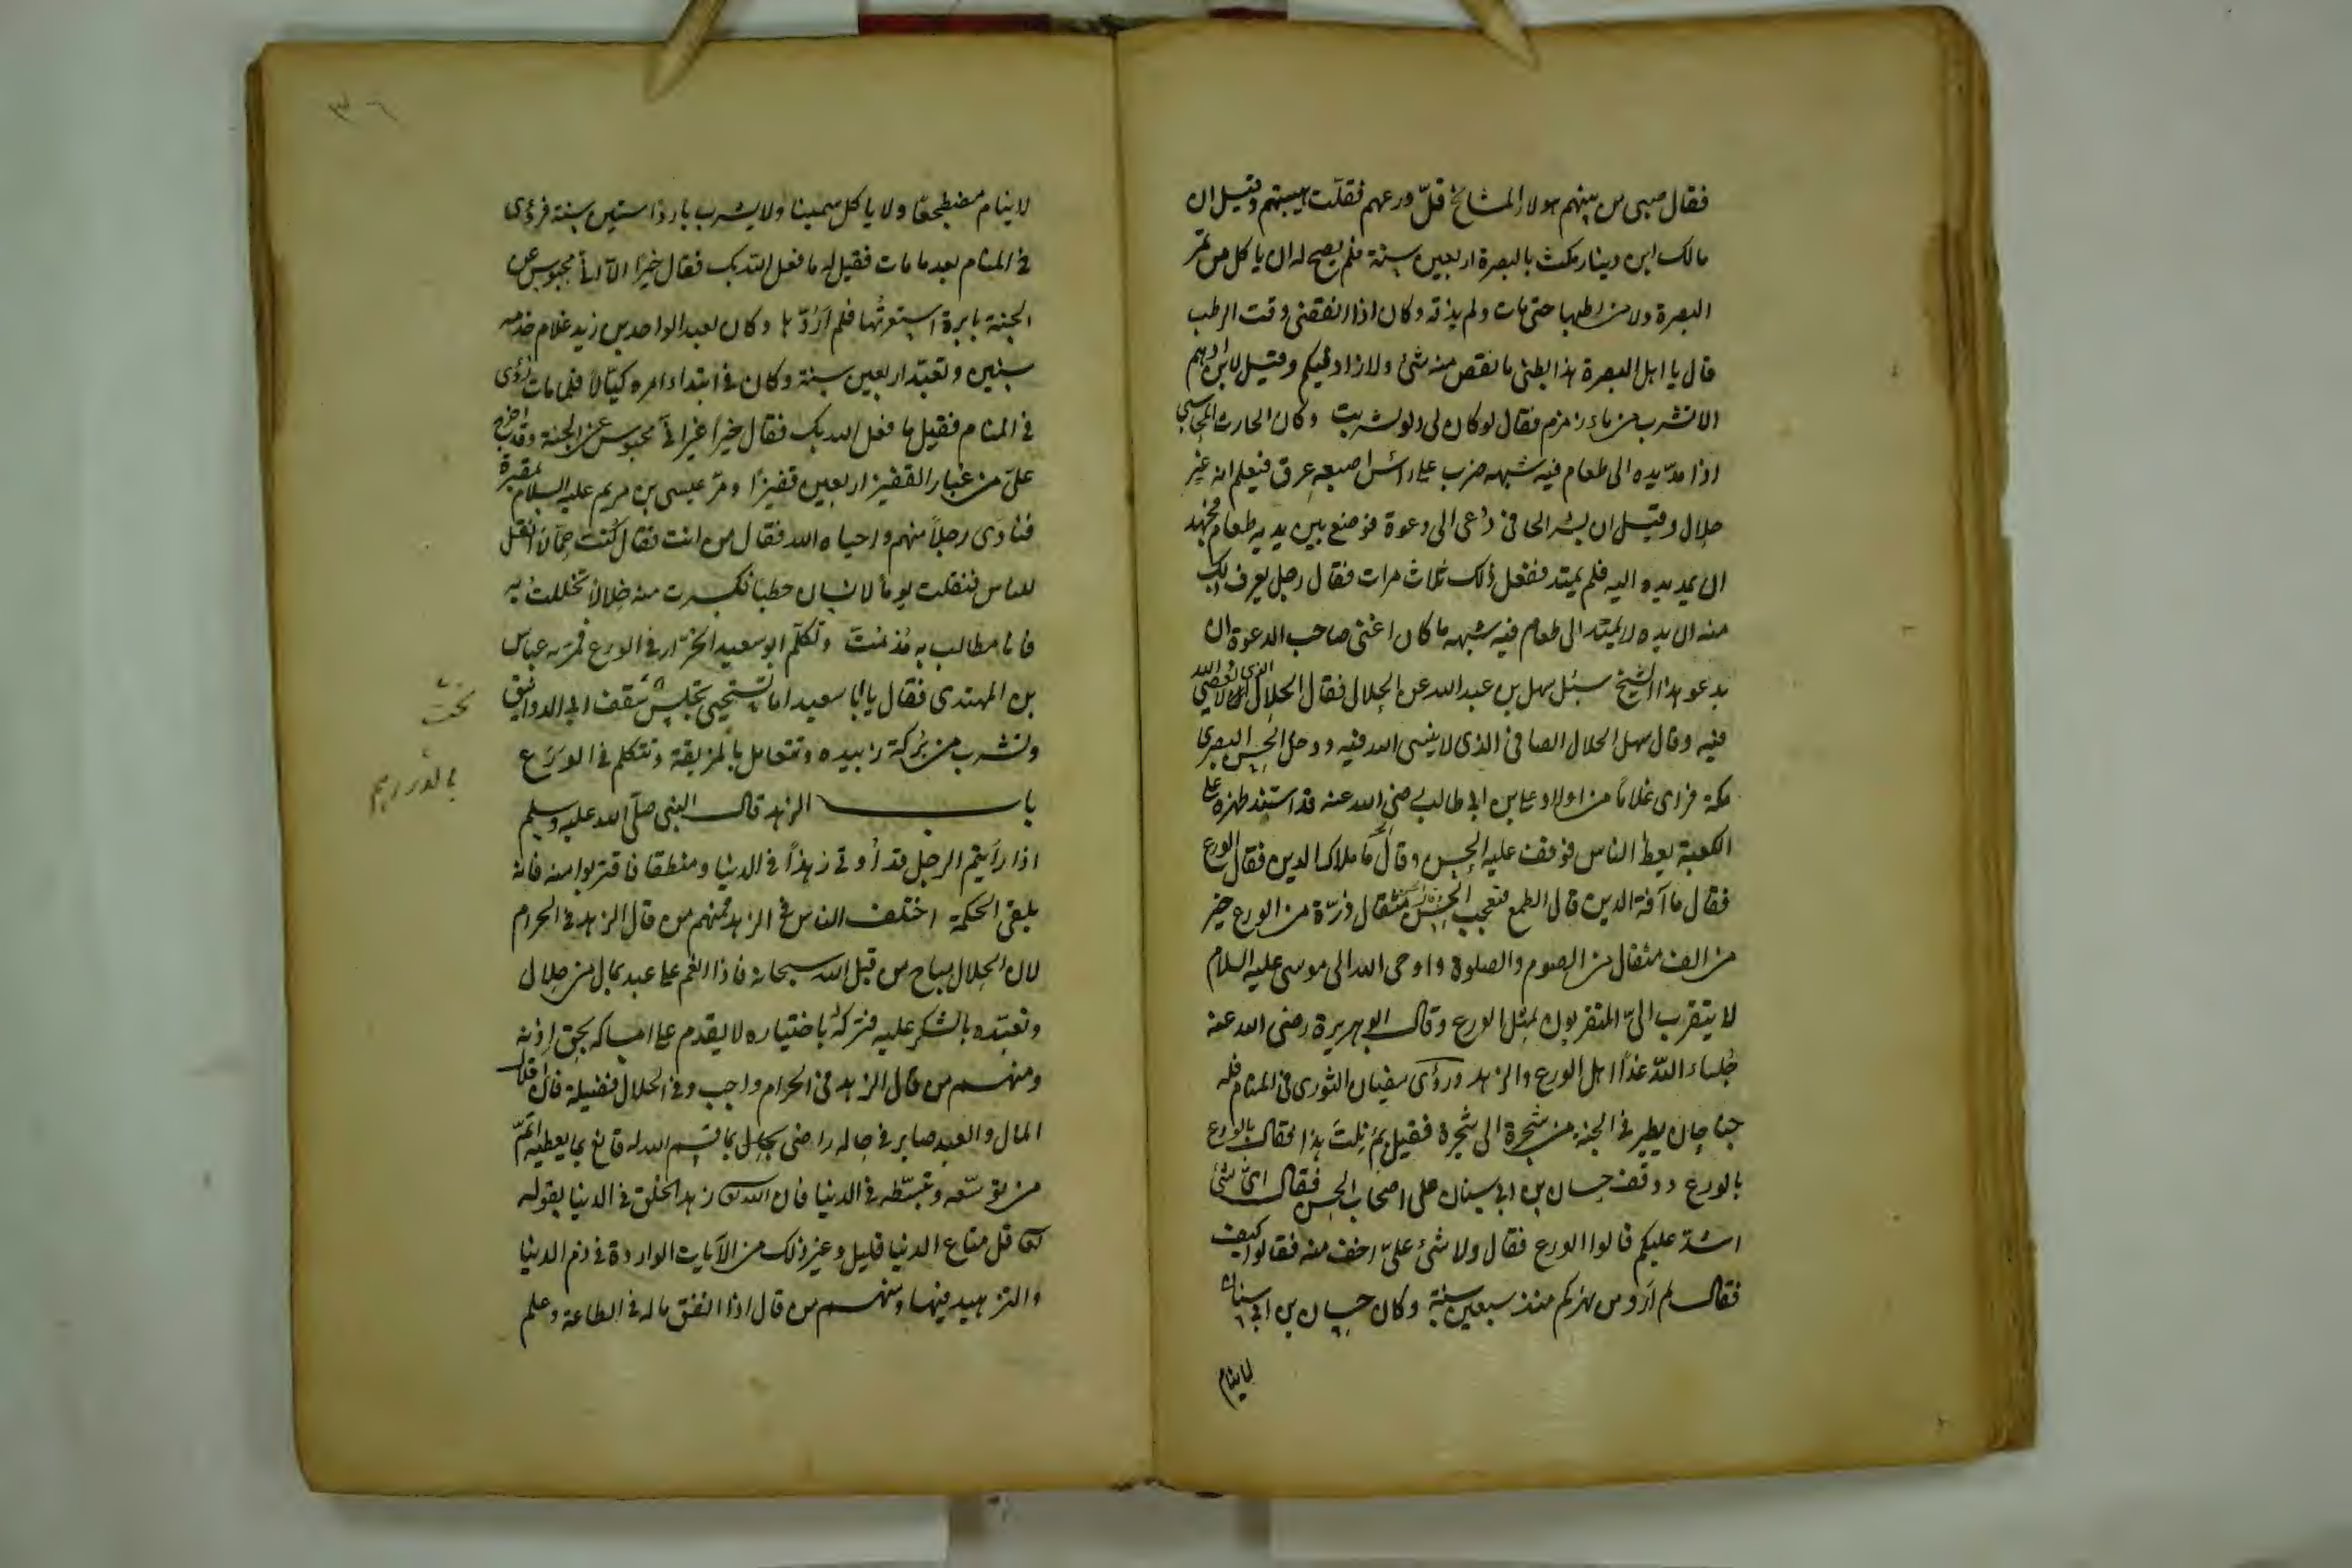 فقال صبى من بينهم هولاء المشايخ قلّ ورعهم فقلّت هيبتهم وقيل ان
مالك ابن دينار مكث بالبصرة اربعين سنة فلم يصح له ان ياكل من تمر
البصرة ولا من رطبها حتى مات ولم يذقه وكان اذا انقضى وقت الرطب
قال يا اهل البصرة هذا بطنى ما نقص منه شئ ولا زاد فيكم وقيل لابن ادهم
الا تشرب من ماء زمزم فقال لو كان لى دلو لشربت وكان الحارث المحاسبى
اذا مدّ يده الى طعام فيه شبهه ضرب على راس اصبعه عرق فيعلم انه غير
حلال وقيل ان بشر الحافى دُعى الى دعوة فوضع بين يديه طعام فجهد
ان يمد يده اليه فلم يمتد ففعل ذلك ثلاث مرات فقال رجل يعرف ذلك
منه ان يده لا يمتد الى طعام فيه شبهه ما كان اغنى صاحب الدعوة ان
يدعو هذا الشيخ سئل سهل بن عبد الله عن الحلال فقال الحلال الذى لا يعصى الله
فيه وقال سهل الحلال الصافى الذى لا ينسى الله فيه ودخل الحسن البصرى
مكة فراى غلاماً من اولاد على بن ابى طالب رضى الله عنه قد اسند ظهره على
الكعبة يعظ الناس فوقف عليه الحسن وقال ما ملاك الدين فقال الورع
فقال ما آفة الدين قال الطمع فتعجب الحسن مثقال ذرّة من الورع خير
من الف مثقال من الصوم والصلوة واوحى الله الى موسى عليه السلام
لا يتقرب الىّ المتقربون بمثل الورع وقال ابو هريرة رضى الله عنه
جُلساء اللّه غداً اهل الورع والزهد ورؤى سفيان الثورى فى المنام فله
جناحان يطير فى الجنة من شجرة الى شجرة فقيل بِمَ نِلتَ هذا فقال بالورع
بالورع ووقف حسان بن ابى سنان على اصحاب الحسن فقال اىّ شئ
اشد عليكم قالوا الورع فقال ولا شئ علىّ اخف منه فقالوا كيف
فقال لم اَروَ من نهركم منذ سبعين سنة وكان حسان بن ابى سنان
لا ينام
لا ينام مضطجعًا ولا ياكل سمينا ولا يشرب باردا ستين سنة فرؤى
فى المنام بعد ما مات فقيل له ما فعل الله بك فقال خيرًا الا انى محبوس عن
الجنة بابرة استعرتُها فلم اَرُدّها وكان لعبد الواحد بن زيد غلام خدمه
سنين وتعبّد اربعين سنة وكان فى ابتداء امره كيّالاً فلما مات رُؤى
فى المنام فقيل ما فعل الله بك فقال خيراً غير انى محبوس عن الجنة وقد اخرج
علىّ من غبار القفيز اربعين قفيزًا ومرّ عيسى بن مريم عليه السلام بمقبرة
فنادى رجلاً منهم واحياه الله فقال من انت فقال كُنت حمّالا انقل
للناس فنقلت يوماً لانسان حطبا فكسرت منه خِلالاً تخللت به
فانا مطالب به مُذ مُتّ وتكلّم ابو سعيد الخرّاز فى الورع فمرّ به عباس
بن المهتدى فقال يا ابا سعيد اما تستحيى تجلس سقف ابى الدوانيق
وتشرب من بركة زبيده وتتعامل بالمزيفة وتتكلم فى الورَع
باب الزهد قال النبى صلّى الله عليه وسلم
اذا رأيتم الرجل قد أُوتى زهداً فى الدنيا ومنطقا فاقتربوا منه فانه
يلقى الحكمة اختلف الناس فى الزهد فمنهم من قال الزهد فى الحرام
لان الحلال مباح من قبل الله سبحانه فاذا انعم على عبد بمال من حلال
وتعبّده بالشكر عليه فتركهُ باختياره لا يقدم على امساكه بحق اِذنه
ومنهم من قال الزهد فى الحرام واجب وفى الحلال فضيلة فان اقلال
المال والعبد صابر فى حاله راضى بما قسم الله له قانع بما يعطيه اتمّ
من توسّعه وتبسّطه فى الدنيا فان الله تعالى زهد الخلق فى الدنيا بقوله
تعالى قل متاع الدنيا قليل وغير ذلك من الآيات الواردة فى ذم الدنيا
والتزهيد فيها ومنهم من قال اذا انفق ماله فى الطاعة وعلم
تحت